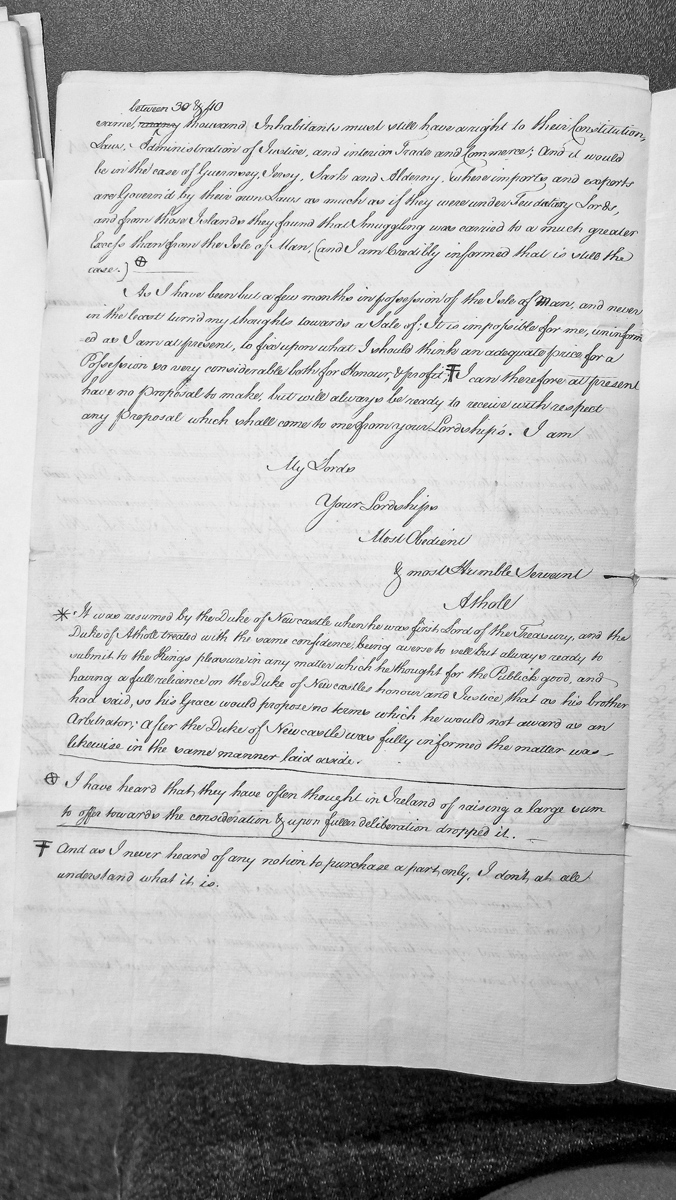 between 30 & 40
same, many thousand Inhabitants must still have a right to their Constitution,
Laws, Administration of Justice, and interior Trade and Commerce; And it would
be in the case of Guernsey, Jersey, Sark and Alderny, where imports and exports
are Govern'd by their own Laws as much as if they were under Feudatory Lords,
and from those Islands they found that Smuggling was carried to a much greater
Excess than from the Isle of Man, (and I am Credibly informed that is still the
case.) ⊕
As I have been but a few months in possession of the Isle of Man, and never
in the least turn'd my thoughts towards a Sale of; It is impossible for me, uninform
ed as I am at present, to fix upon what I should think an adequate price for a
Possession so very considerable both for Honour, & profit, Ŧ I can therefore at present
have no proposal to make, but will always be ready to receive with respect
any proposal which shall come to me from your Lordship's. I am
My Lords
Your Lordships
Most Obedient
& most Humble Servant
Atholl
* It was resumed by the Duke of Newcastle when he was first Lord of the Treasury, and the
Duke of Atholl treated with the same confidence, being averse to sell but always ready to
submit to the Kings pleasure in any matter which he thought for the Publick good, and
having a full reliance on the Duke of Newcastles honour and Justice, that as his brother
had said, so his Grace would propose no terms which he would not award as an
Arbitrator; after the Duke of Newcastle was fully informed the matter was
likewise in the same manner laid aside.
⊕ I have heard that, they have often thought in Ireland of raising a large sum
to offer towards the consideration & upon fuller deliberation dropped it.
Ŧ And as I never heard of any notion to purchase a part only, I don't at all
understand what it is.